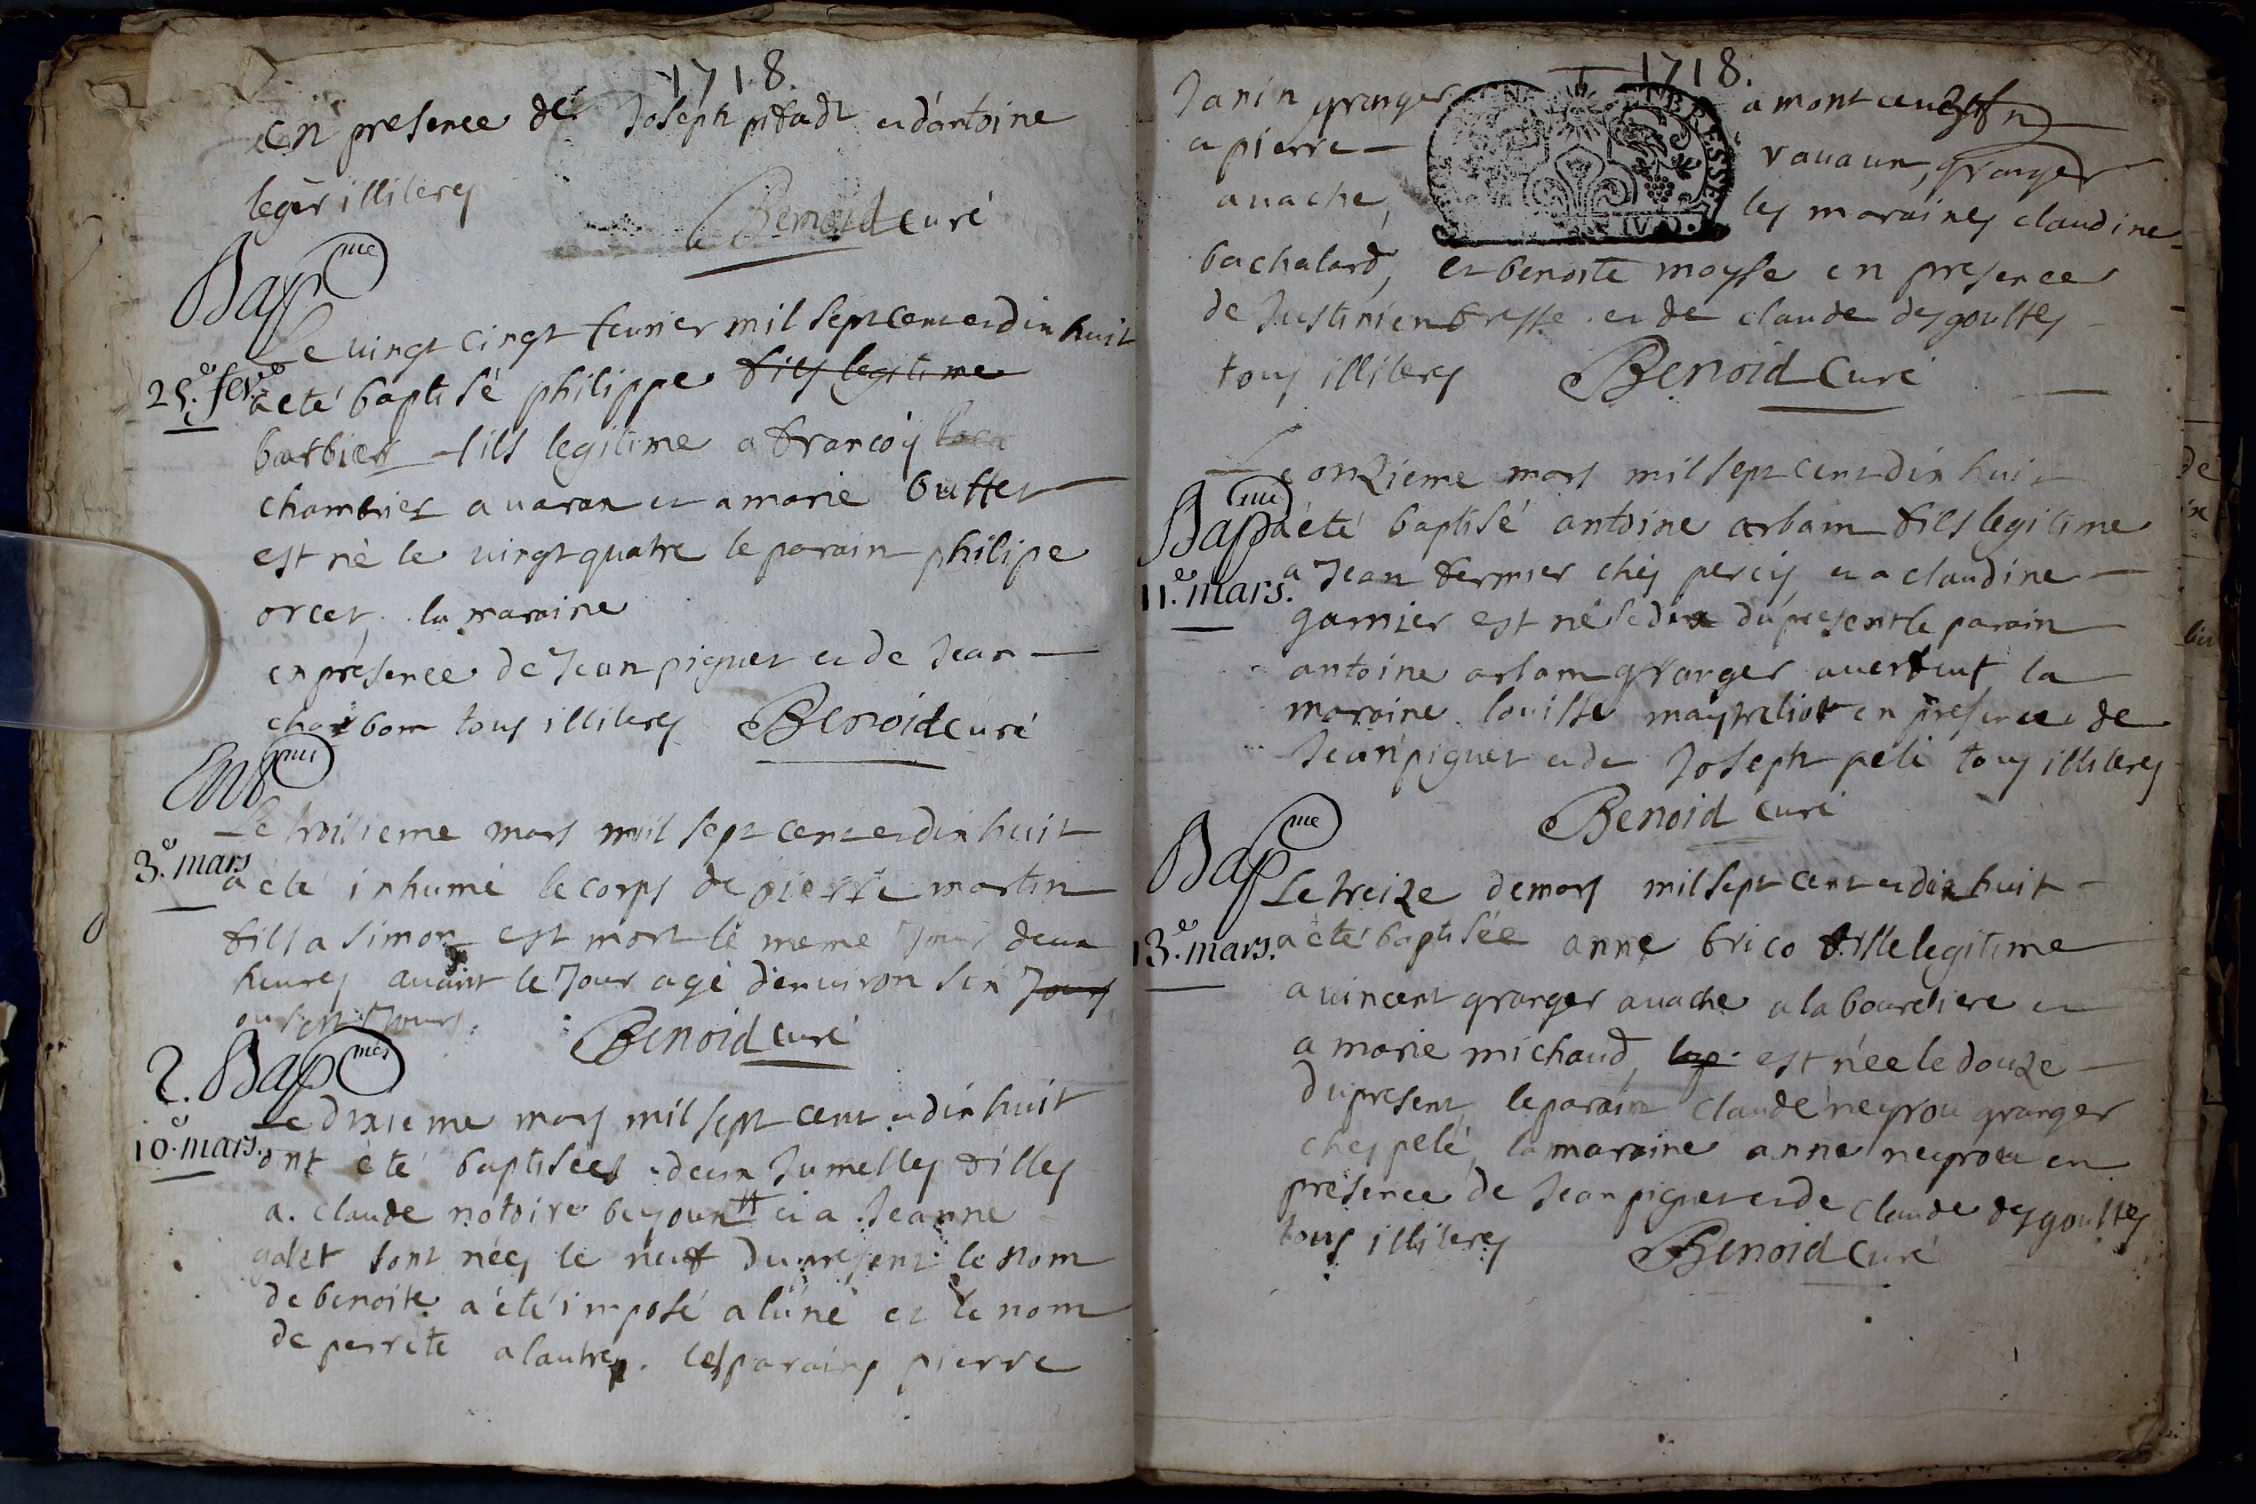 1718.
en presence de Joseph pitadt et d'antoine
leger illiteres
Benoid curé
Bapme
Le vingt cinqt feurier mil sept cent et dix huit
25.e fev.e
a eté baptisé philippe fils legitime
barbier fils legitime a francois
chambrier a varan et a marie buffet
est né le vingt quatre le parain philipe
orcet, la maraine
en présence de Jean pignet et de Jean
charbon tous illiteres Benoid curé
Entme
Le troisieme mars mil sept cent et dix huit
3.e mars
a eté inhumé le corps de pierre martin
fils a simon est mort le meme Jour deux
heures avant le Jour agé denviron six Jours
ou sept Jours. Benoid curé
2. Bapmes
Le dixieme mars mil sept cent et dix huit
10.e mars.
ont été baptisées deux Jumelles filles
a claude notoire et a Jeanne
galet sont nées le neuf du present le nom
de benoite a été imposé a l'une et le nom
de perrete a lautre. les parains pierre
1718.
Janin granger a montceau
a pierre vavaux, granger
avache, les maraines claudine
bachalard, et benoite moyse en presence
de Justinien bresse et de claude desgouttes
tous illiteres Benoid Curé
Le onzieme mars mil sept cent dix huit
Bapme
a été baptisé antoine arbain fils legitime
11.e mars.
a Jean fermier chés percy, et a claudine
garnier est né le dix du present le parain
antoine arbain granger la
maraine louisse en presence de
Jean pignet et de Joseph pelé tous illiteres
Benoid curé
Bapme
Le treize de mars mil sept cent et dix huit
13.e mars.
a eté baptisée anne brico fille legitime
a vincent granger avache a la boureliere et
a marie michaud, est née le douze
du present, le parain claude neyrou granger
ches pelé, la maraine anne neyrou en
presence de Jean pignet et de claude desgouttes
tous illiteres Benoid Curé